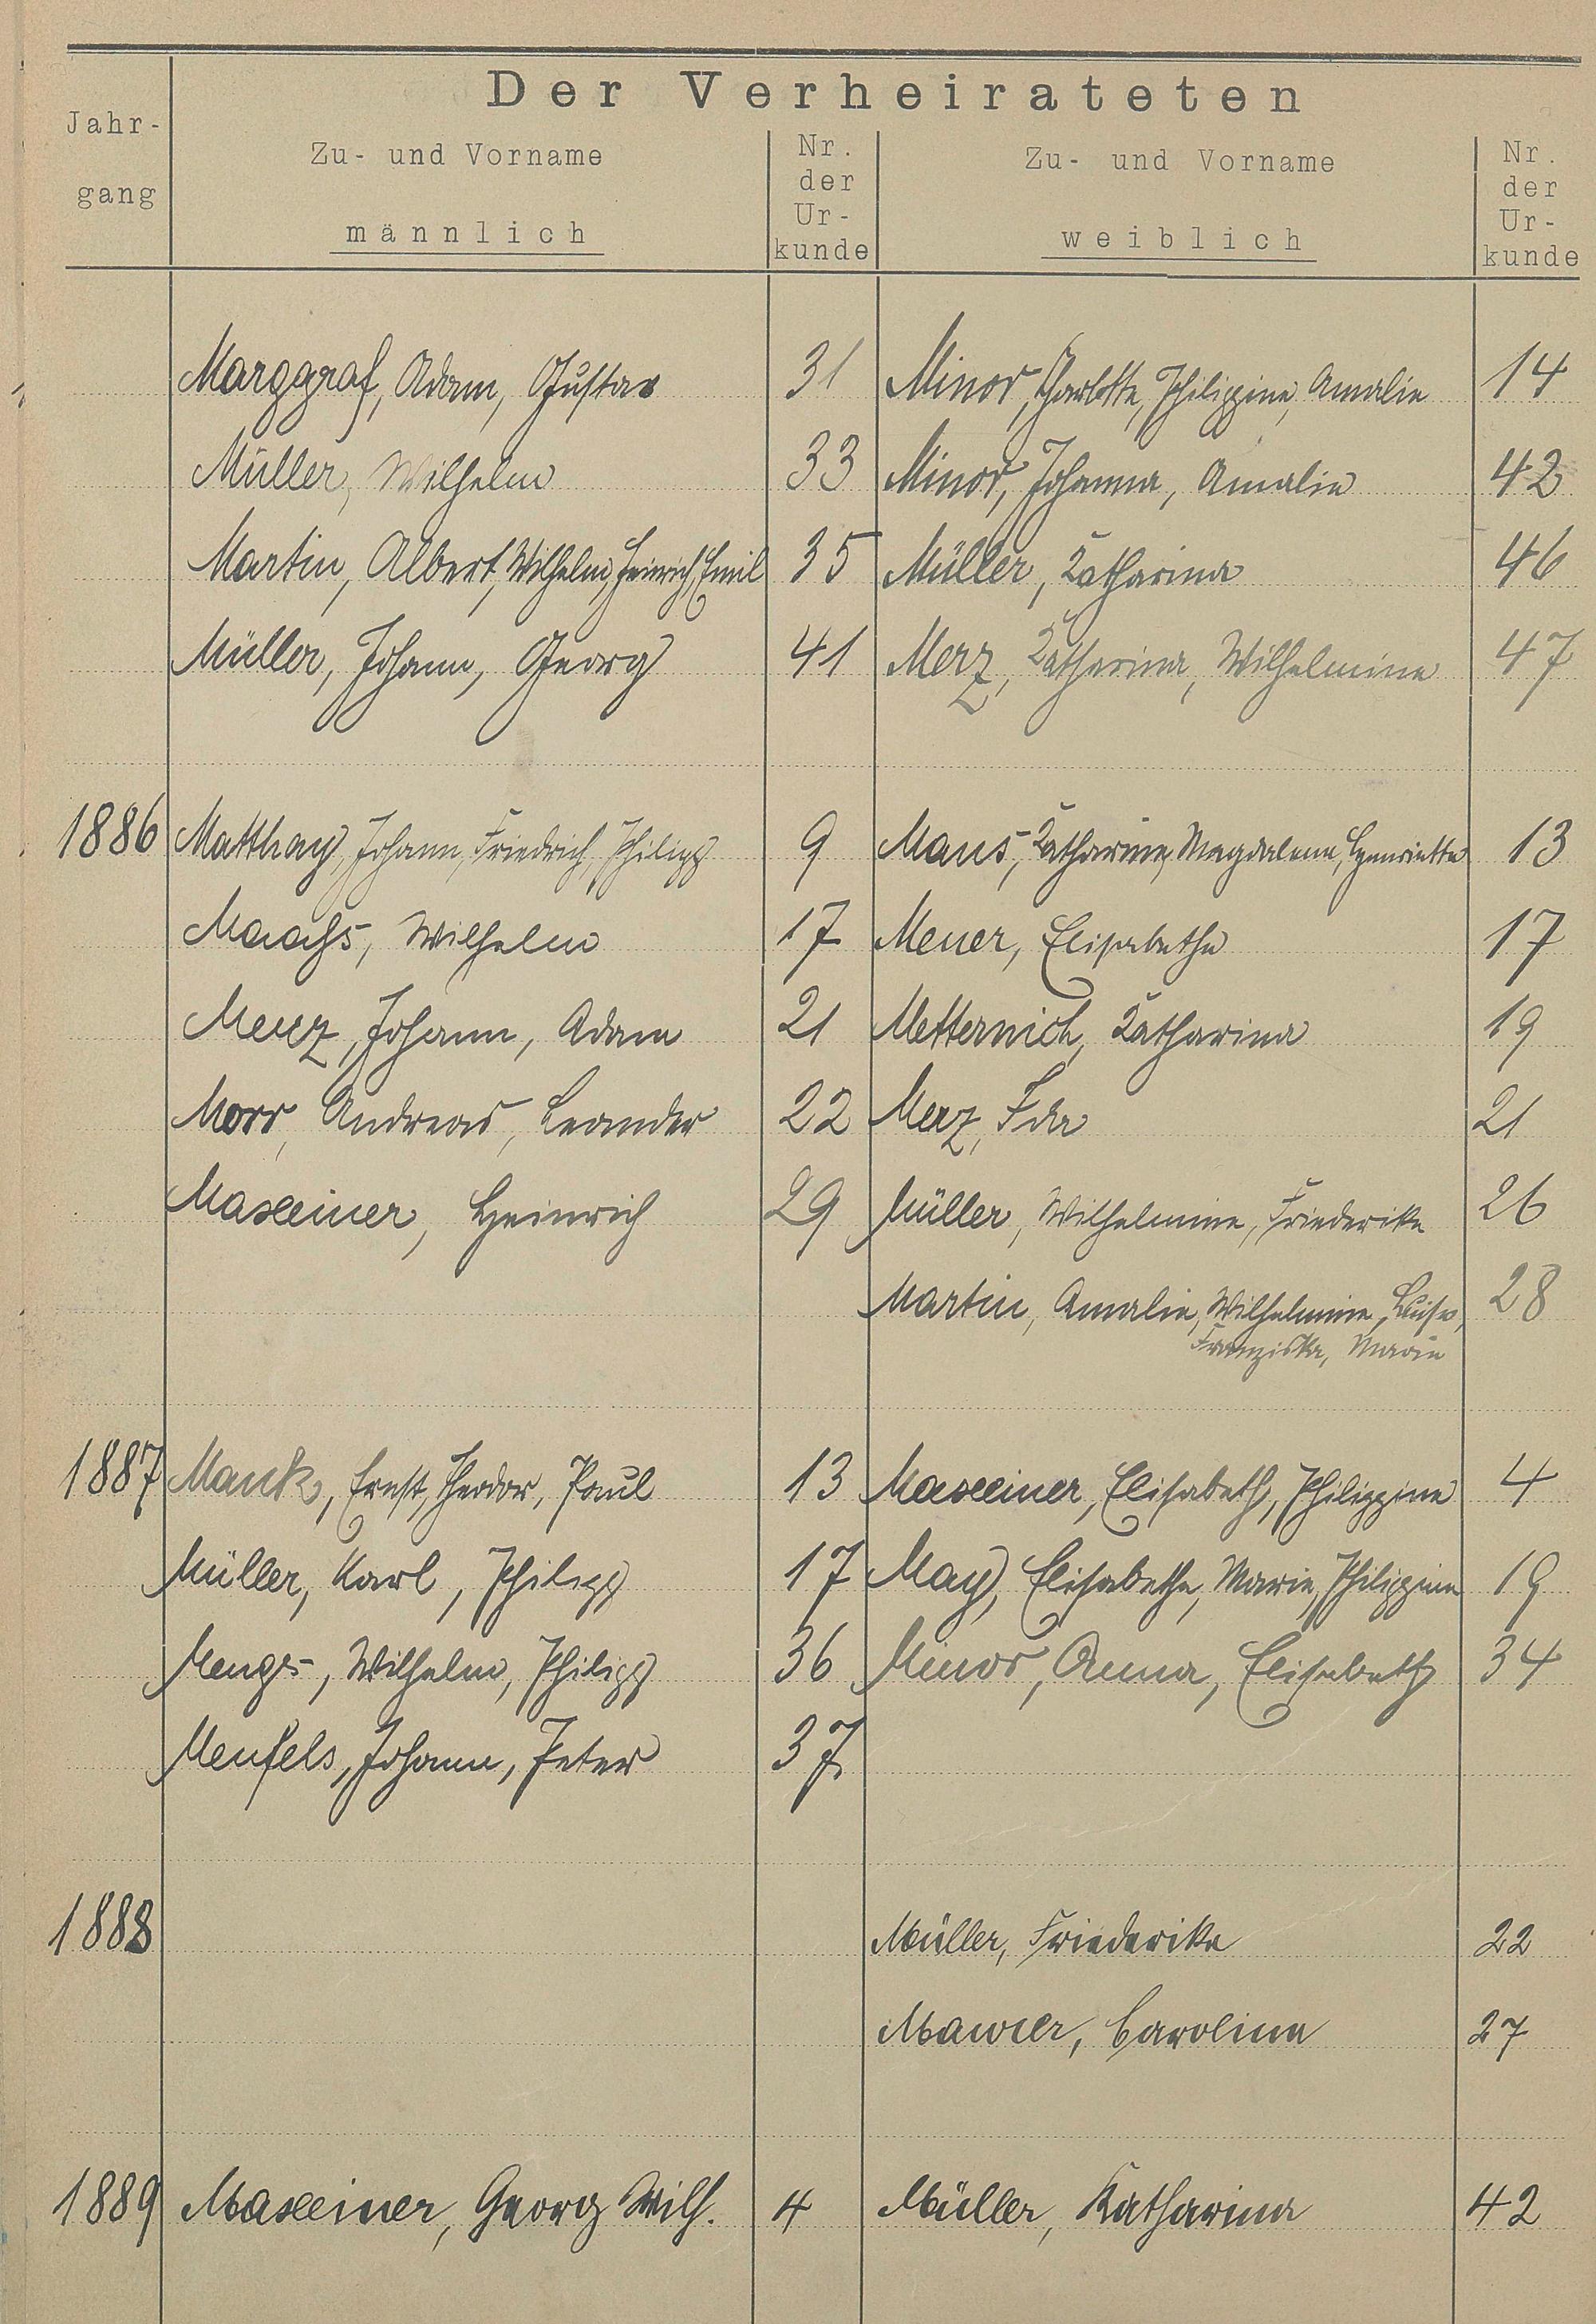 Der Verheirateten
Jahr-
gang
Zu- und Vorname
männlich
Nr.
der
Ur-
kunde
Zu- und Vorname
weiblich
Nr.
der
Ur-
kunde
Marggraf, Adam, Gustav 31 Minor, Charlotte, Philippine, Amalie 14
Müller, Wilhelm 33 Minor, Johanna, Amalie 42
Martin, Albert, Wilhelm, Heinrich, Emil 35 Müller, Katharina 46
Müller, Johann, Georg 41 Merz, Katharina, Wilhelmine 47
1886 Matthay, Johann, Friedrich, Philipp 9 Maus, Katharine, Magdalene, Henriette 13
Maahs, Wilhelm 17 Meuer, Elisabethe 17
Merz, Johann, Adam 21 Metternich, Katharina 19
Morr, Andreas, Leander 22 Merz, Ida 21
Maxeiner, Heinrich 29 Müller, Wilhelmine, Friederike 26
Martin, Amalie, Wilhelmine, Luise, 28
Franziska, Marie
1887 Mank, Ernst, Theodor, Paul 13 Maxeiner, Elisabeth, Philippine 4
Müller, Karl, Philipp 17 May, Elisabethe, Marie, Philippine 19
Menges, Wilhelm, Philipp 36 Minor, Anna, Elisabeth 34
Meufels, Johann, Peter 37
1888 Müller, Friederike 22
Maurer, Caroline 27
1889 Maxeiner, Georg Wilh. 4 Müller, Katharina 42